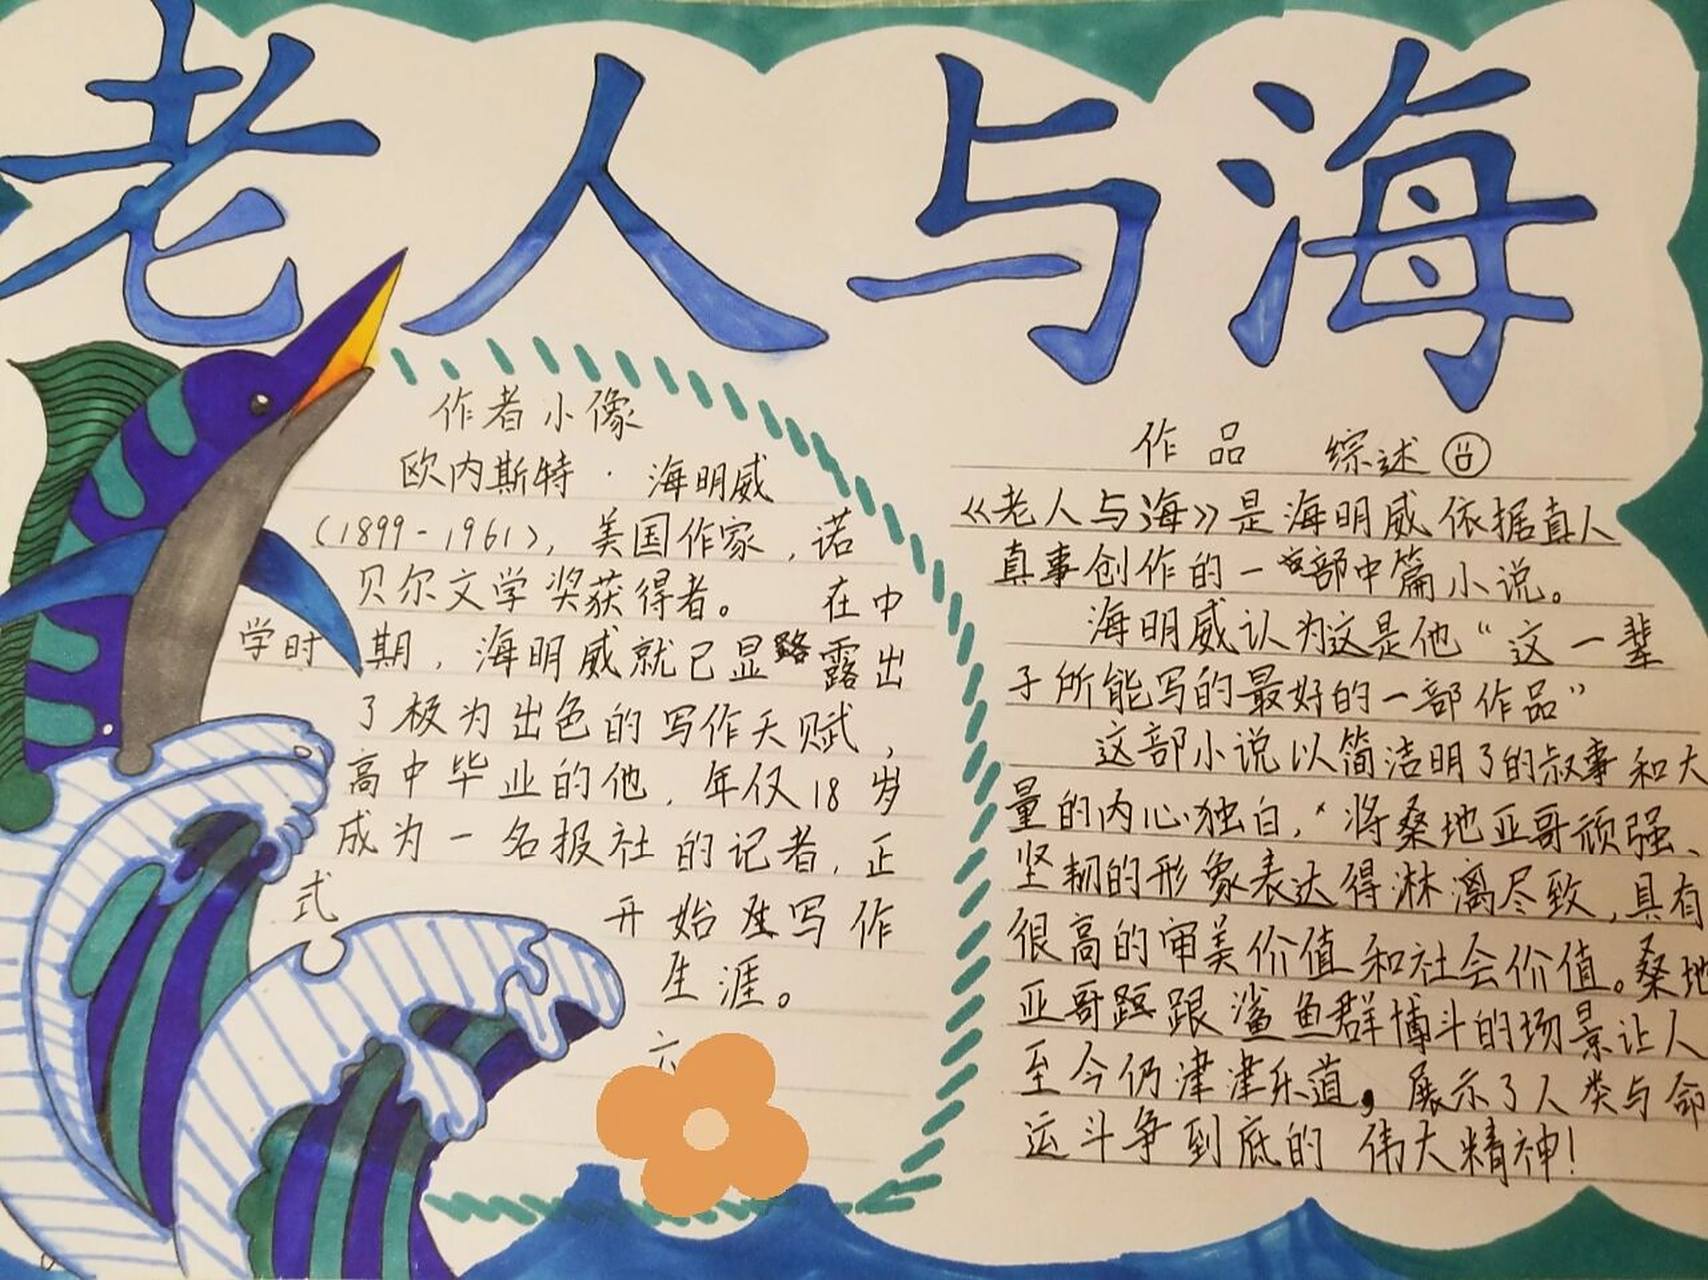 老人与海
作者小像
欧内斯特·海明威
(1899-1961),美国作家,诺
贝尔文学奖获得者。 在中
学时期,海明威就已显露出
了极为出色的写作天赋,
高中毕业的他,年仅18岁
成为一名报社的记者,正
式开始写作
生涯。
作品 综述
《老人与海》是海明威依据真人
真事创作的一部中篇小说。
海明威认为这是他“这一辈
子所能写的最好的一部作品”
这部小说以简洁明了的叙事和大
量的内心独白,将桑地亚哥顽强、
坚韧的形象表达得淋漓尽致,具有
很高的审美价值和社会价值。桑地
亚哥跟鲨鱼群博斗的场景让人
至今仍津津乐道,展示了人类与命
运斗争到底的伟大精神!